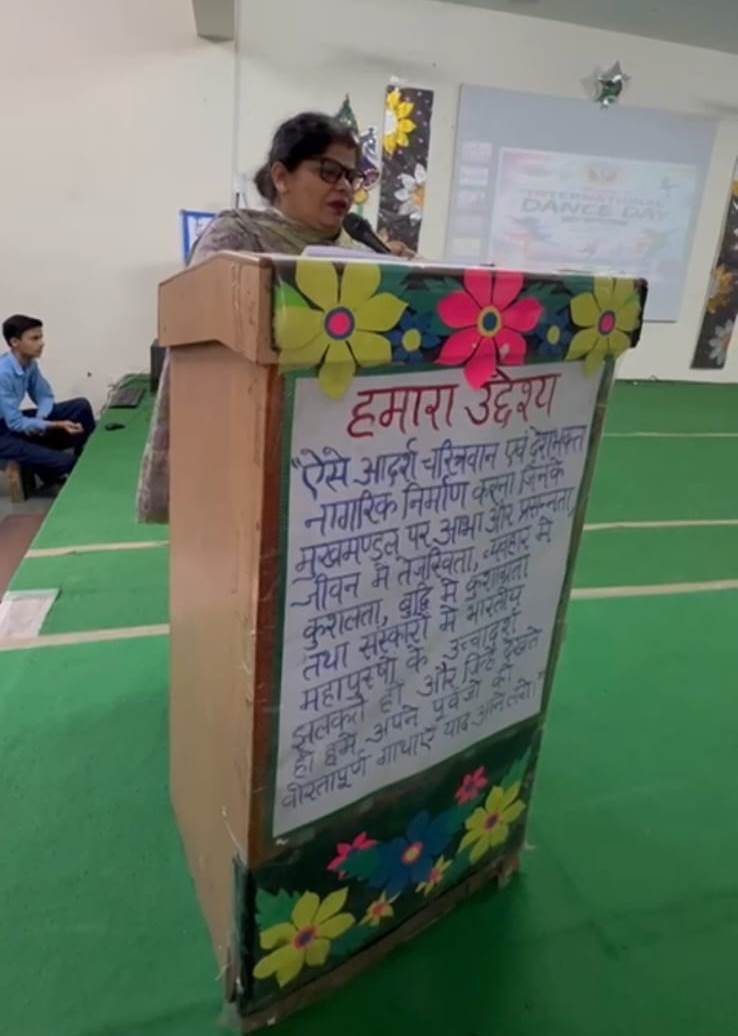 INTERNATIONAL
DANCE DAY
हमारा उद्देश्य
"ऐसे आदर्श चरित्रवान एवं देशभक्त
नागरिक निर्माण करना जिनके
मुखमण्डल पर आभा और प्रसन्नता,
जीवन में तेजस्विता, व्यवहार में
कुशलता, बुद्धि में कुशाग्रता
तथा संस्कारों में भारतीय
महापुरुषों के उच्चादर्श
झलकते हों और जिन्हें देखते
ही हमें अपने पूर्वजों की
वीरतापूर्ण गाथाएँ याद आने लगें।"